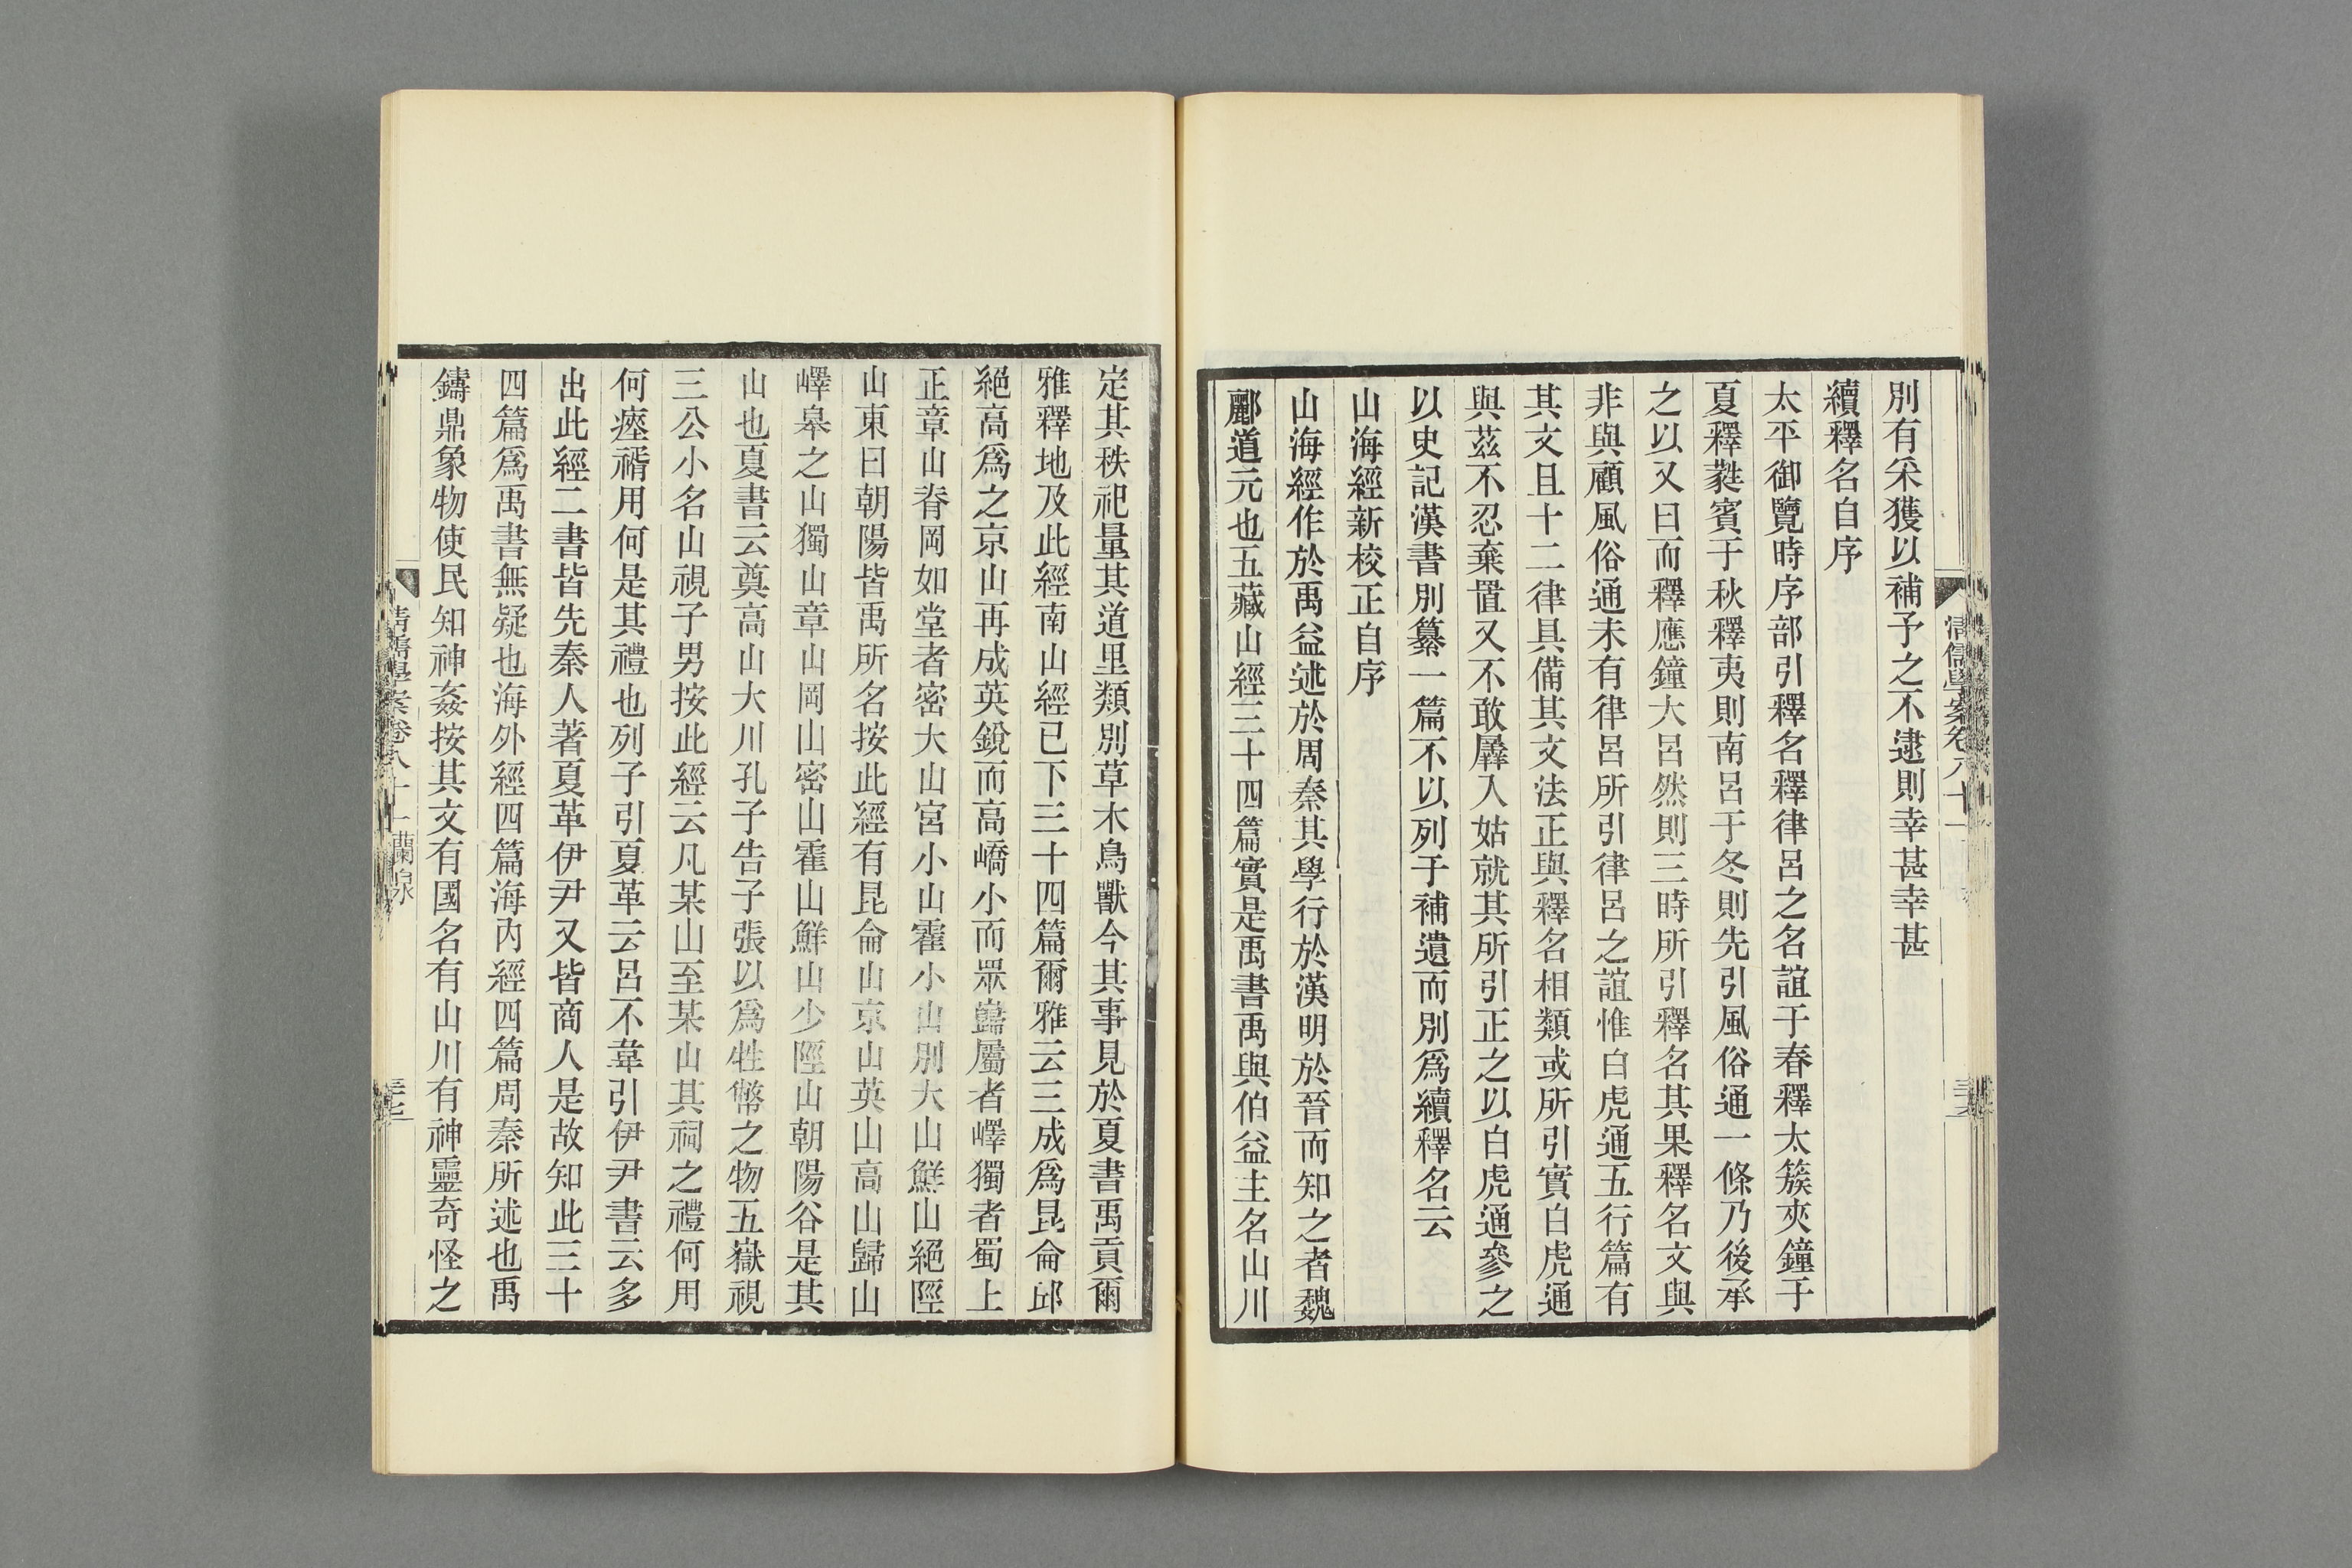 清儒學案卷八十一
別有采獲以補予之不逮則幸甚幸甚
續釋名自序
太平御覽時序部引釋名釋律呂之名誼于春釋太簇夾鐘于
夏釋蕤賓于秋釋夷則南呂于冬則先引風俗通一條乃後承
之以又曰而釋應鐘大呂然則三時所引釋名其果釋名文與
非與顧風俗通未有律呂所引律呂之誼惟白虎通五行篇有
其文且十二律具備其文法正與釋名相類或所引實白虎通
與茲不忍棄置又不敢羼入姑就其所引正之以白虎通參之
以史記漢書別纂一篇不以列于補遺而別爲續釋名云
山海經新校正自序
山海經作於禹益述於周秦其學行於漢明於晉而知之者魏
酈道元也五藏山經三十四篇實是禹書禹與伯益主名山川
定其秩祀量其道里類別草木鳥獸今其事見於夏書禹貢爾
雅釋地及此經南山經已下三十四篇爾雅云三成爲昆侖邱
絕高爲之京山再成英銳而高嶠小而眾巋屬者嶧獨者蜀上
正章山脊岡如堂者密大山宮小山霍小山別大山鮮山絕陘
山東曰朝陽皆禹所名按此經有昆侖山京山英山高山歸山
嶧皋之山獨山章山岡山密山霍山鮮山少陘山朝陽谷是其
山也夏書云奠高山大川孔子告子張以爲牲幣之物五嶽視
三公小名山視子男按此經云凡某山至某山其祠之禮何用
何瘞糈用何是其禮也列子引夏革云呂不韋引伊尹書云多
出此經二書皆先秦人著夏革伊尹又皆商人是故知此三十
四篇爲禹書無疑也海外經四篇海內經四篇周秦所述也禹
鑄鼎象物使民知神姦按其文有國名有山川有神靈奇怪之
清儒學案卷八十一 蘭泉